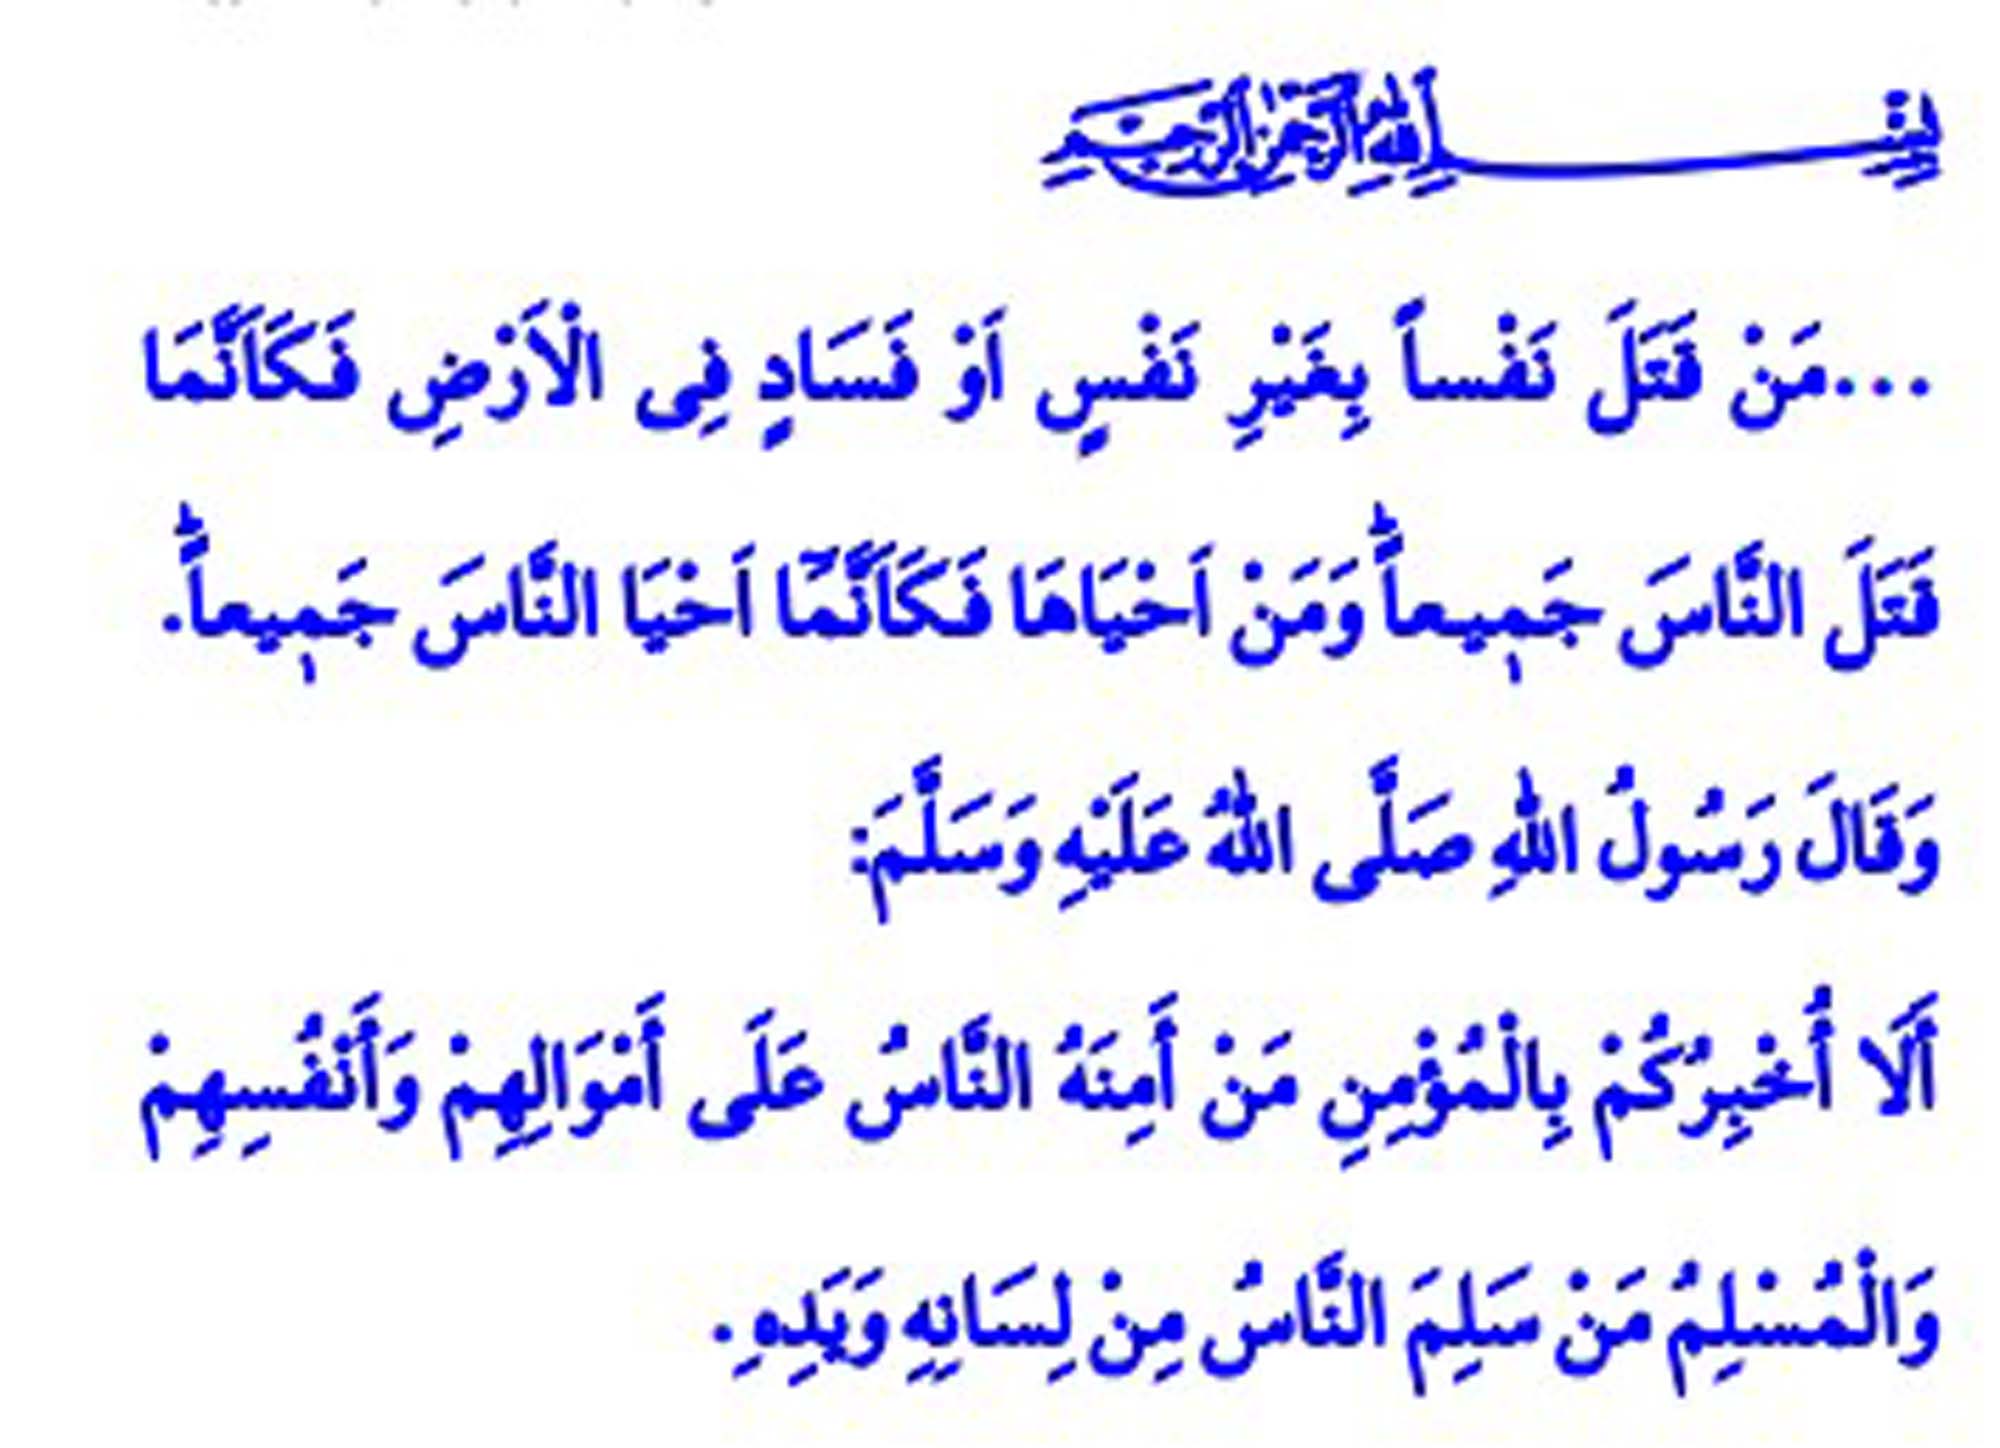 بِسْمِ اللهِ الرَّحْمٰنِ الرَّحِيمِ
...مَنْ قَتَلَ نَفْساً بِغَيْرِ نَفْسٍ اَوْ فَسَادٍ فِى الْاَرْضِ فَكَاَنَّمَا
قَتَلَ النَّاسَ جَمٖيعاًؕ وَمَنْ اَحْيَاهَا فَكَاَنَّمَٓا اَحْيَا النَّاسَ جَمٖيعاًؕ.
وَقَالَ رَسُولُ اللّٰهِ صَلَّى اللّٰهُ عَلَيْهِ وَسَلَّمَ:
أَلَا أُخْبِرُكُمْ بِالْمُؤْمِنِ مَنْ أَمِنَهُ النَّاسُ عَلَى أَمْوَالِهِمْ وَأَنْفُسِهِمْ
وَالْمُسْلِمُ مَنْ سَلِمَ النَّاسُ مِنْ لِسَانِهِ وَيَدِهِ.